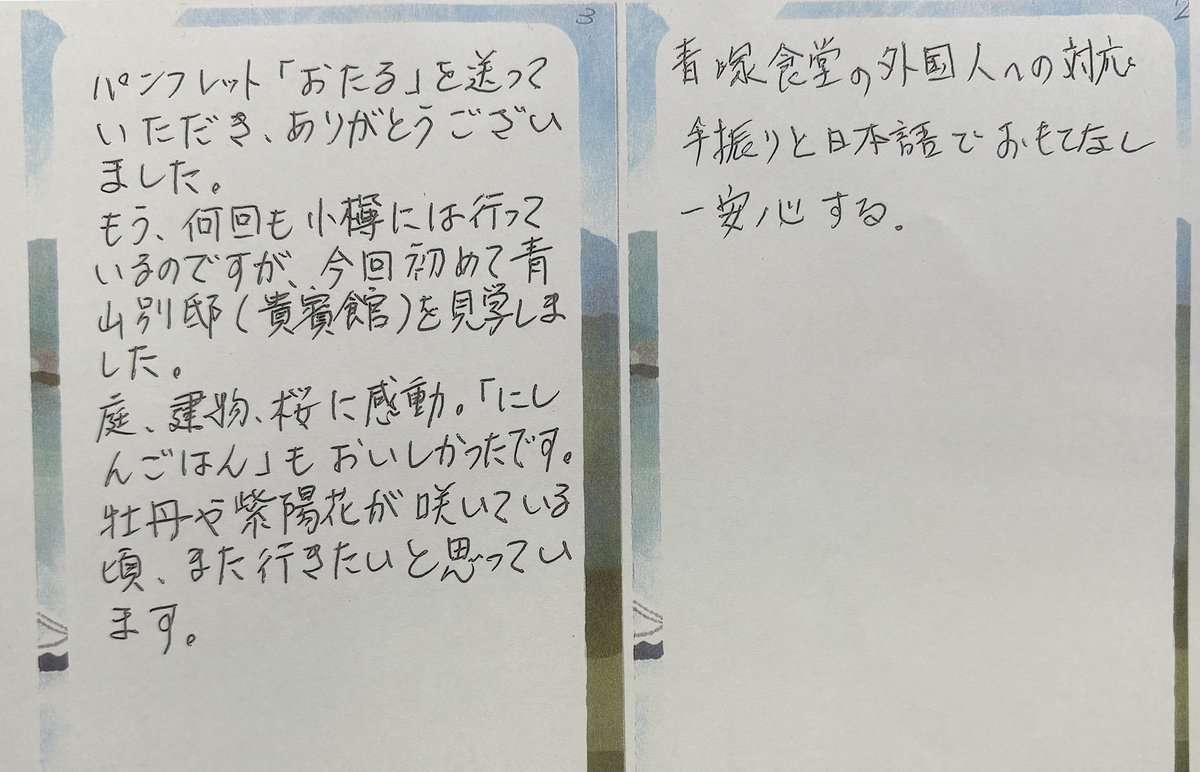 3
パンフレット「おたる」を送って
いただき、ありがとうござい
ました。
もう、何回も小樽には行って
いるのですが、今回初めて青
山別邸(貴賓館)を見学しま
した。
庭、建物、桜に感動。「にし
んごはん」もおいしかったです。
牡丹や紫陽花が咲いている
頃、また行きたいと思ってい
ます。
2
青塚食堂の外国人への対応
手振りと日本語でおもてなし
一安心する。